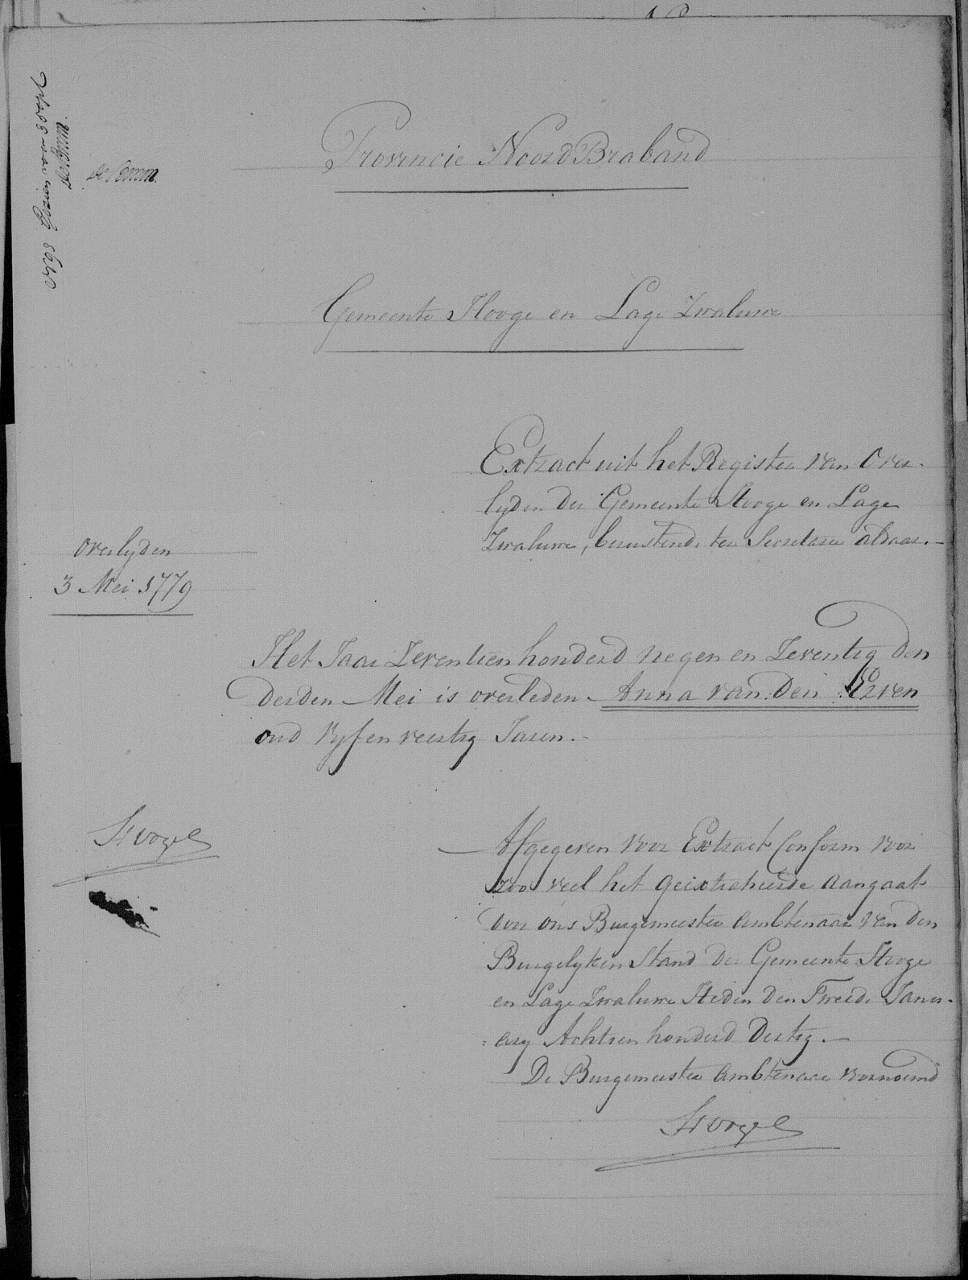 Provincie Noord Braband
Gemeente Hooge en Lage Zwaluwe
Extract uit het Register van Over-
lyden der Gemeente Hooge en Lage
Zwaluwe, berustende ter Secretarie aldaar.-
overlyden
3 Mei 1779
Het Jaar Zeventien honderd negen en Zeventig den
derden Mei is overleden Anna van den Erven
oud vyf en veertig Jaren.-
Afgegeven voor Extract Conform voor
zoo veel het geëxtraheerde aangaat
door ons Burgemeester ambtenaar van den
Burgelyken Stand der Gemeente Hooge
en Lage Zwaluwe Heden den Tweede Janu-
=ary Achtien honderd dertig.-
De Burgemeester ambtenaar voornoemd